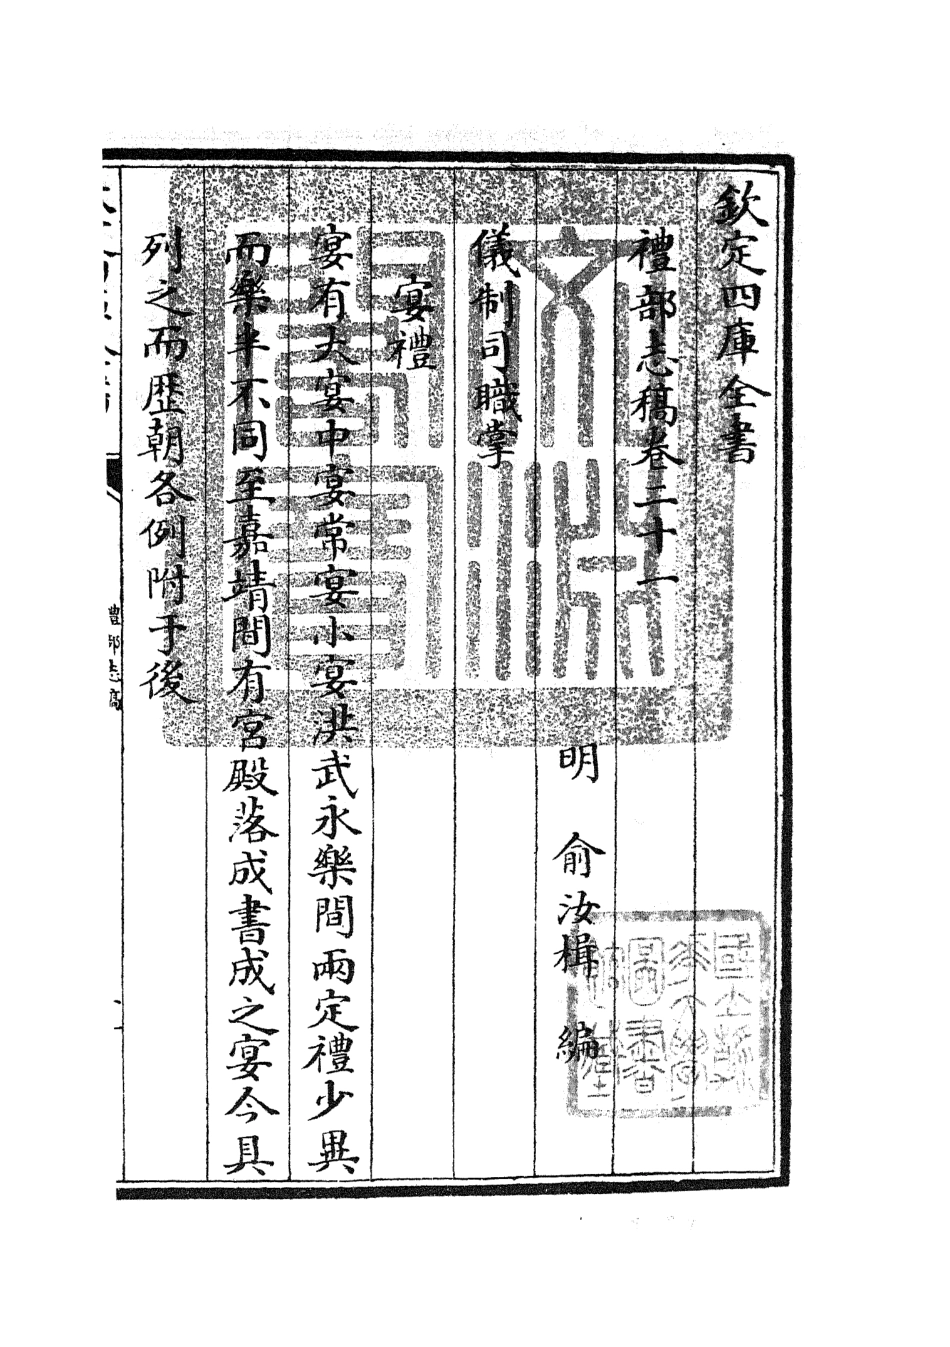 欽定四庫全書
禮部志稿卷二十一
明 俞汝楫 編
儀制司職掌
宴禮
宴有大宴中宴常宴小宴洪武永樂間兩定禮少異
而樂半不同至嘉靖間有宮殿落成書成之宴今具
列之而歴朝各例附于後
禮部志稿